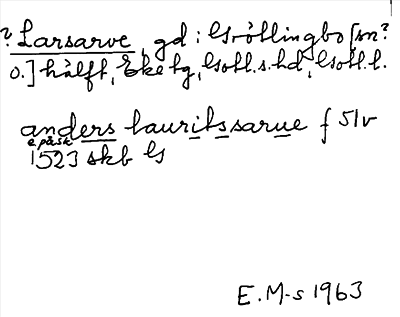 ? Larsarve, gd i Grötlingbo [sn?
o.] hälft, Eke tg, Gotl. s. hd, Gotl. l.
anders lauritssarue f 51v
e påsk
1523 skb G
E. M-s 1963